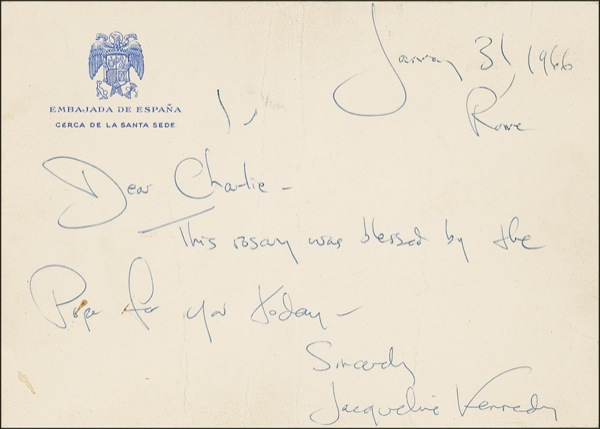 EMBAJADA DE ESPAÑA
CERCA DE LA SANTA SEDE
January 31, 1966
Rome
Dear Charlie –
This rosary was blessed by the
Pope for you today –
Sincerely
Jacqueline Kennedy